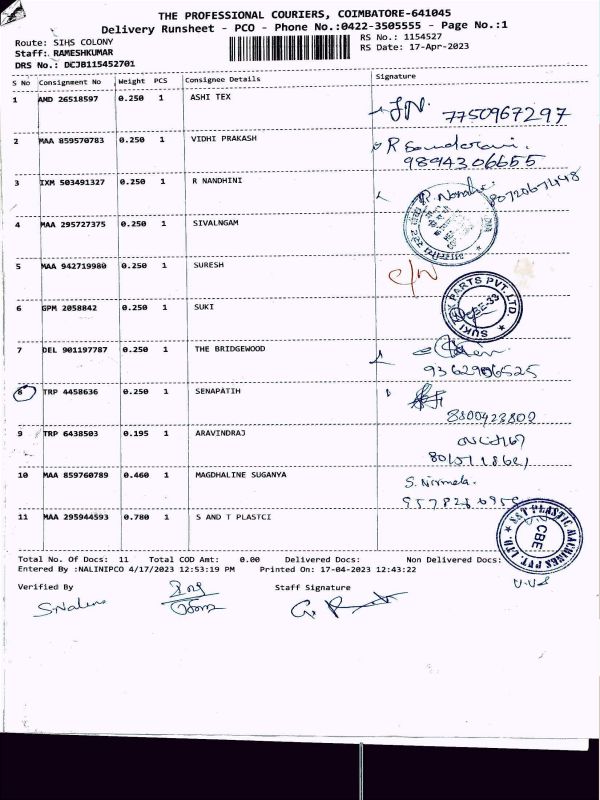 THE PROFESSIONAL COURIERS, COIMBATORE-641045
Delivery Runsheet - PCO - Phone No.:0422-3505555 - Page No.:1
Route: SIHS COLONY
RS No.: 1154527
Staff: RAMESHKUMAR
RS Date: 17-Apr-2023
DRS No.: DCJB115452701
S No Consignment No Weight PCS Consignee Details Signature
1 AMD 26518597 0.250 1 ASHI TEX
7750967297
2 MAA 859570783 0.250 1 VIDHI PRAKASH R
9894306655
3 IXM 503491327 0.250 1 R NANDHINI R. Nandhi
4 MAA 295727375 0.250 1 SIVALNGAM
5 MAA 942719980 0.250 1 SURESH
6 GPM 2058842 0.250 1 SUKI
SUKI PARTS PVT. LTD. CBE-33
7 DEL 901197787 0.250 1 THE BRIDGEWOOD
9362906525
8 TRP 4458636 0.250 1 SENAPATIH
9 TRP 6438503 0.195 1 ARAVINDRAJ
10 MAA 859760789 0.460 1 MAGDHALINE SUGANYA S. Nirmala.
11 MAA 295944593 0.780 1 S AND T PLASTCI
S&T PLASTIC MACHINES PVT. LTD. CBE
Total No. Of Docs: 11 Total COD Amt: 0.00 Delivered Docs: Non Delivered Docs:
Entered By :NALINIPCO 4/17/2023 12:53:19 PM Printed On: 17-04-2023 12:43:22
Verified By Staff Signature